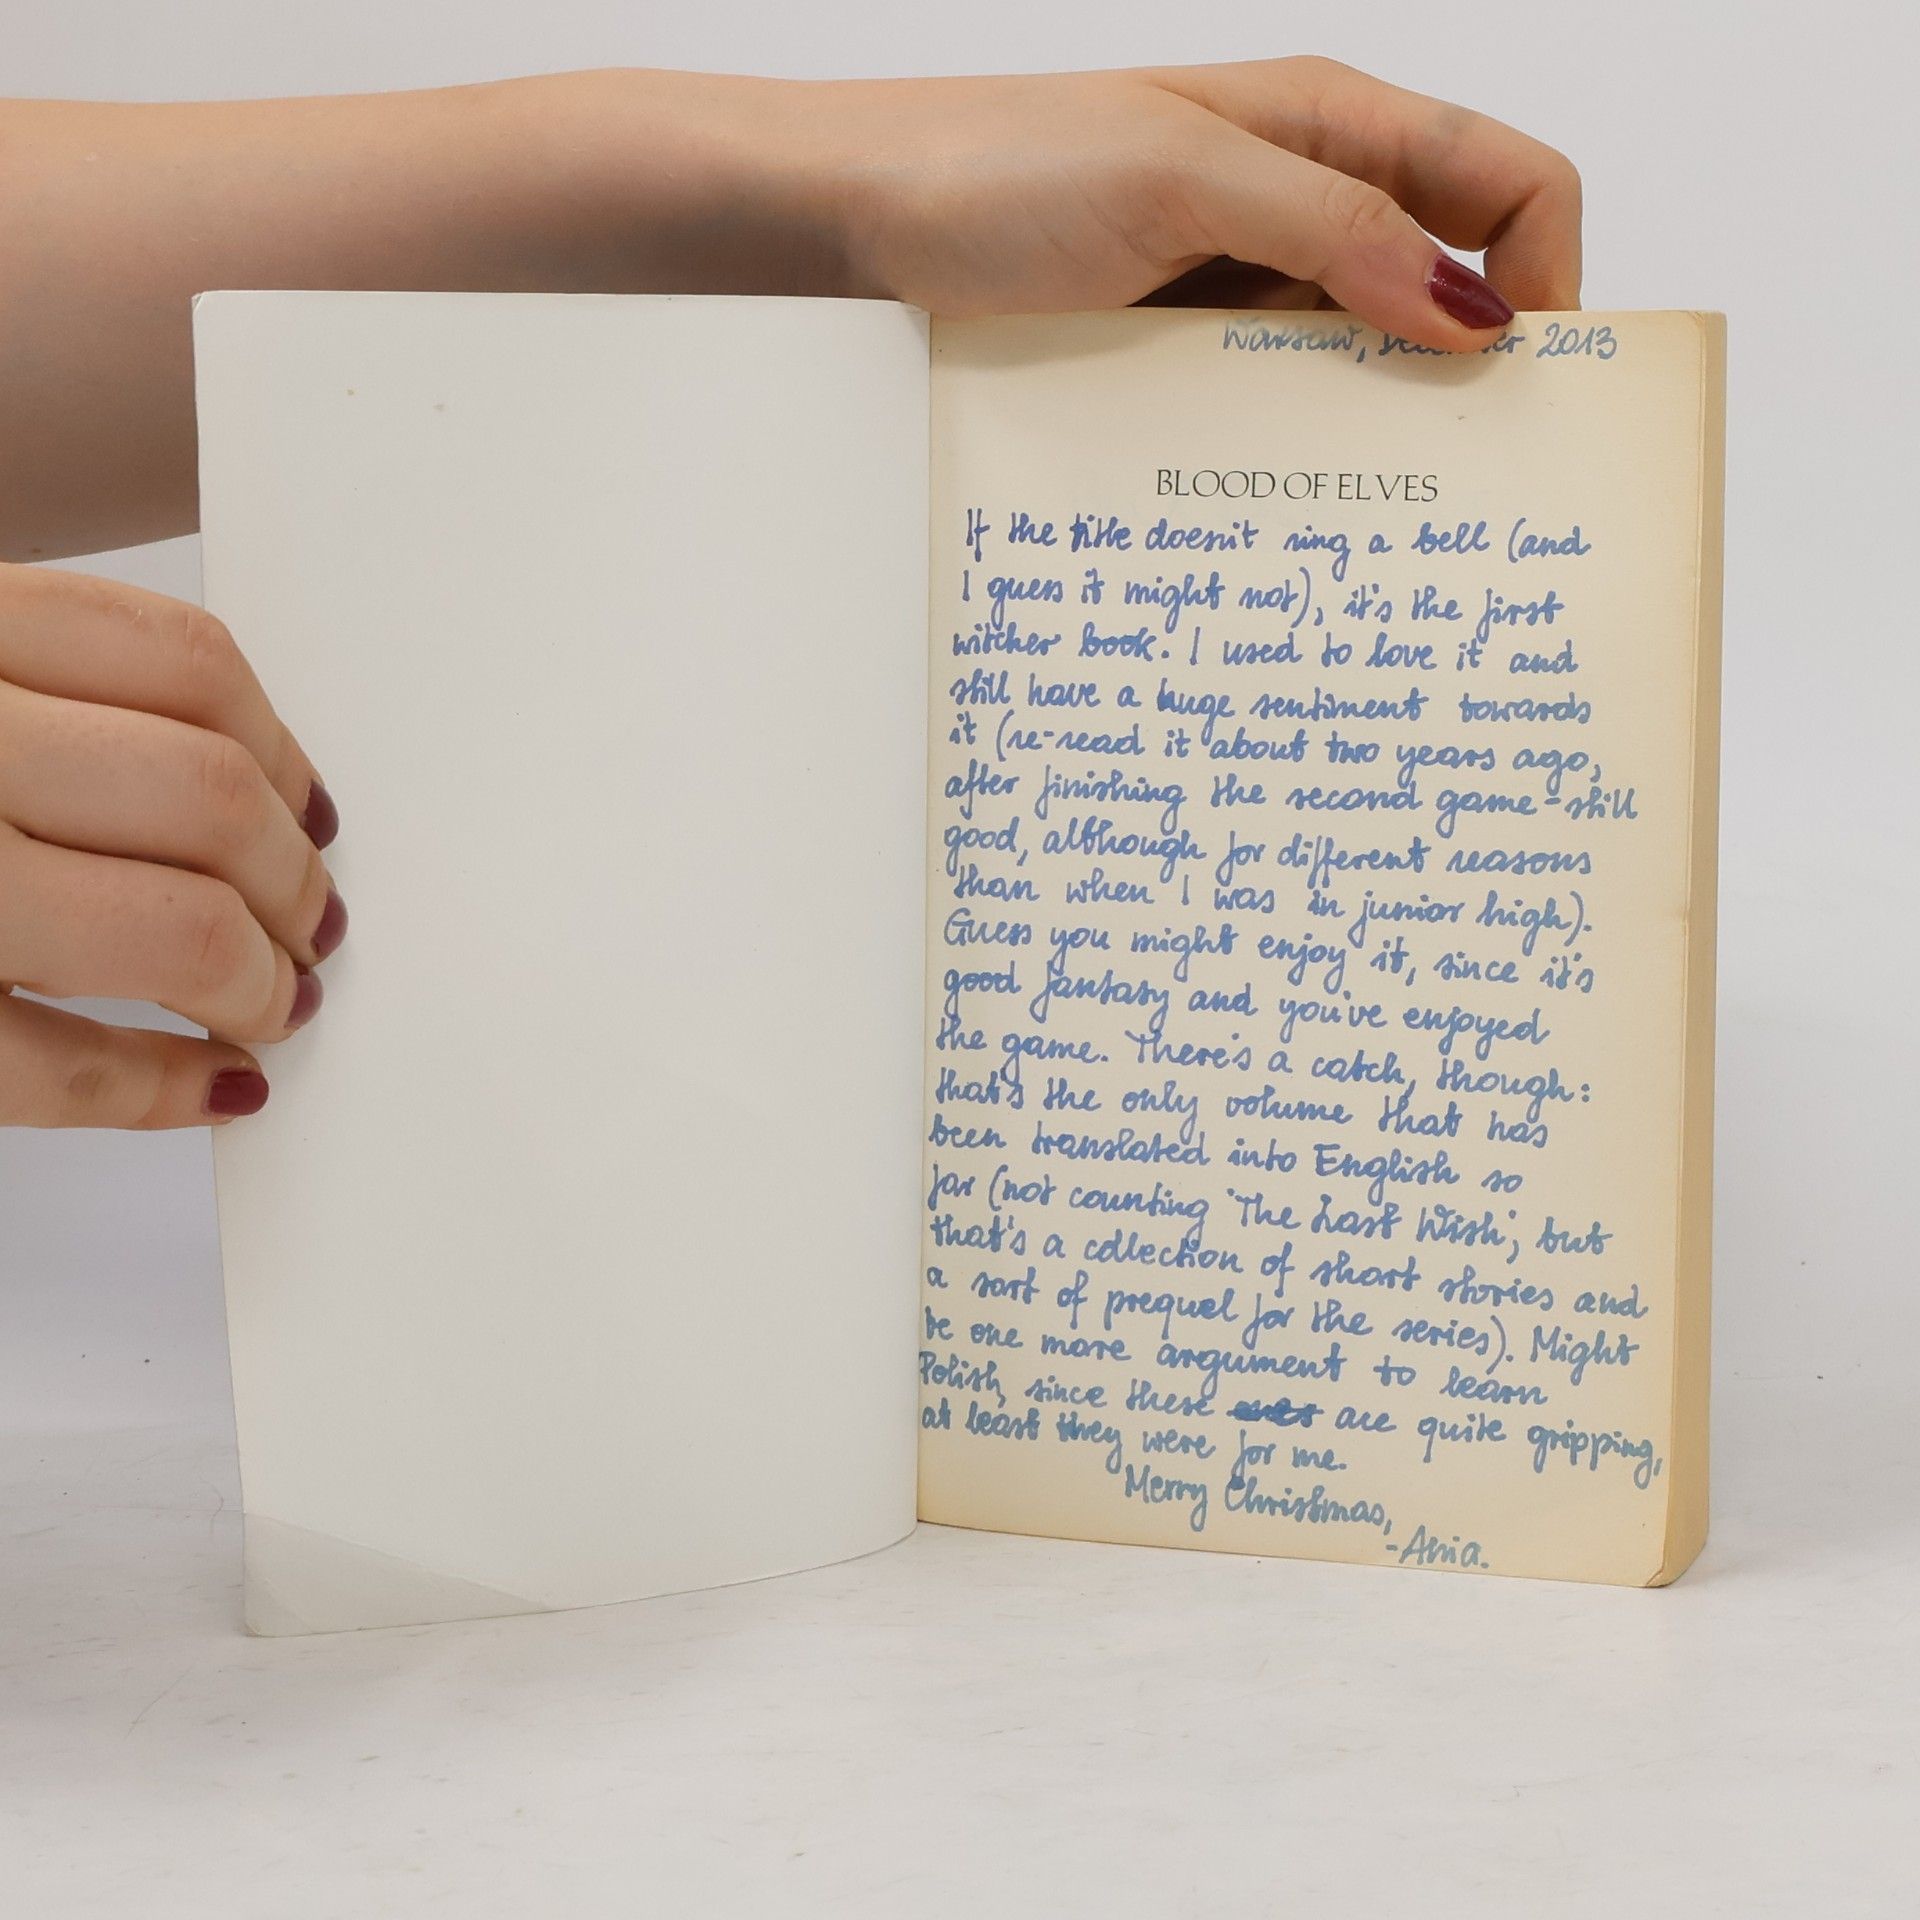 Warsaw, December 2013
BLOOD OF ELVES
If the title doesn't ring a bell (and
I guess it might not), it's the first
witcher book. I used to love it and
still have a huge sentiment towards
it (re-read it about two years ago,
after finishing the second game - still
good, although for different reasons
than when I was in junior high).
Guess you might enjoy it, since it's
good fantasy and you've enjoyed
the game. There's a catch, though:
that's the only volume that has
been translated into English so
far (not counting 'The Last Wish', but
that's a collection of short stories and
a sort of prequel for the series). Might
be one more argument to learn
Polish, since these are quite gripping,
at least they were for me.
Merry Christmas,
-Ania.